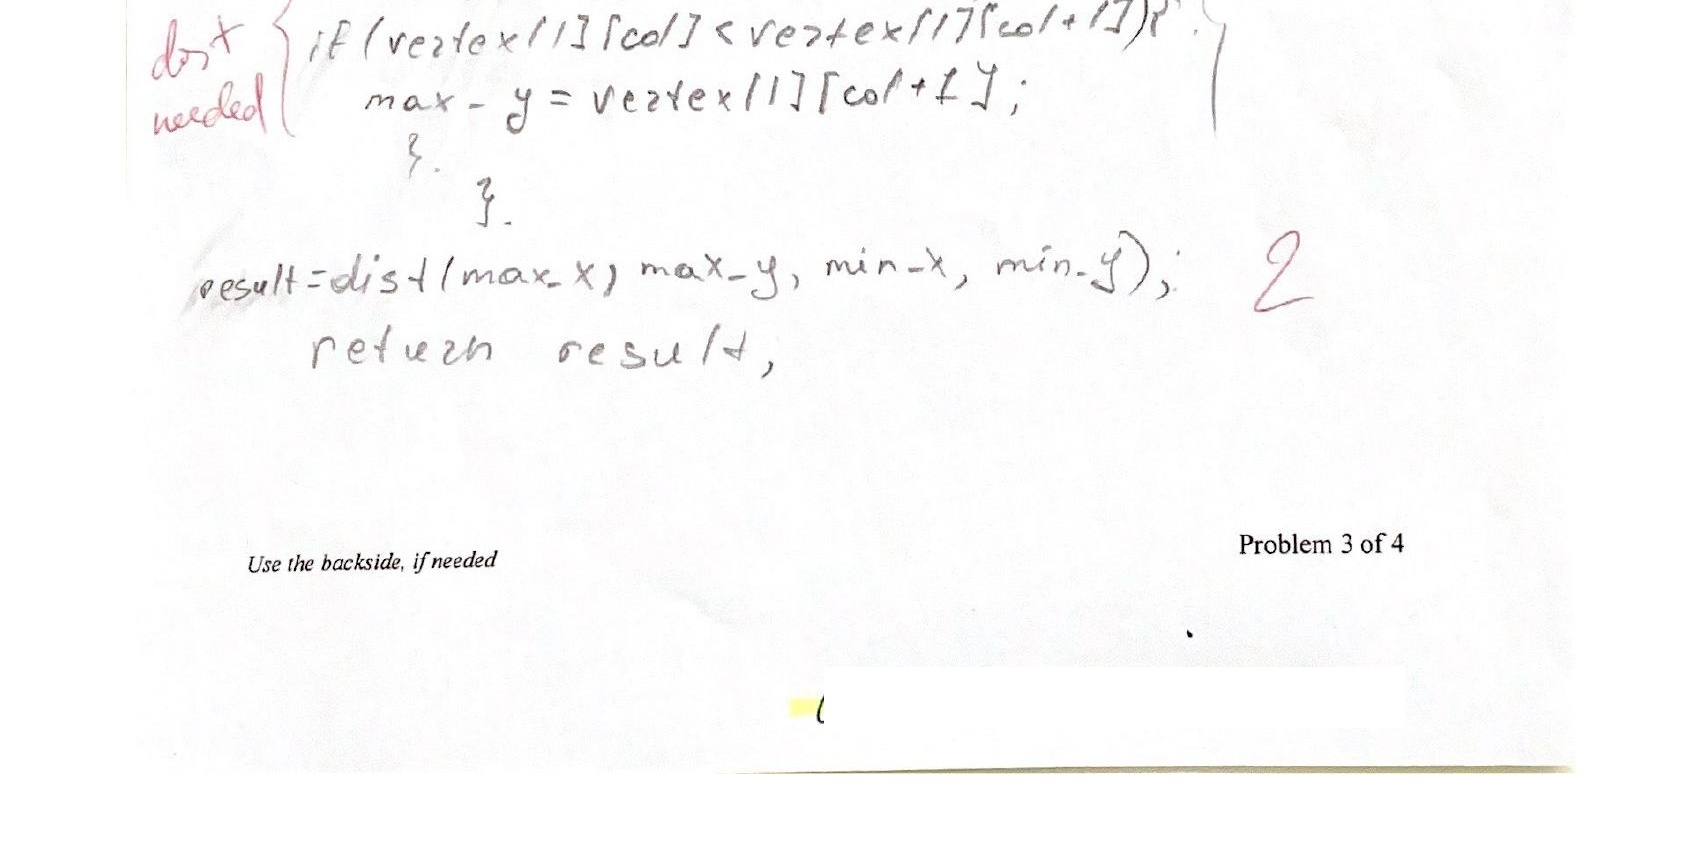 dist { if (vertex[1][col] < vertex[1][col+1]){
needed max_y = vertex[1][col+1];
}
}
result = dist(max_x, max_y, min_x, min_y); 2
return result;
Use the backside, if needed
Problem 3 of 4